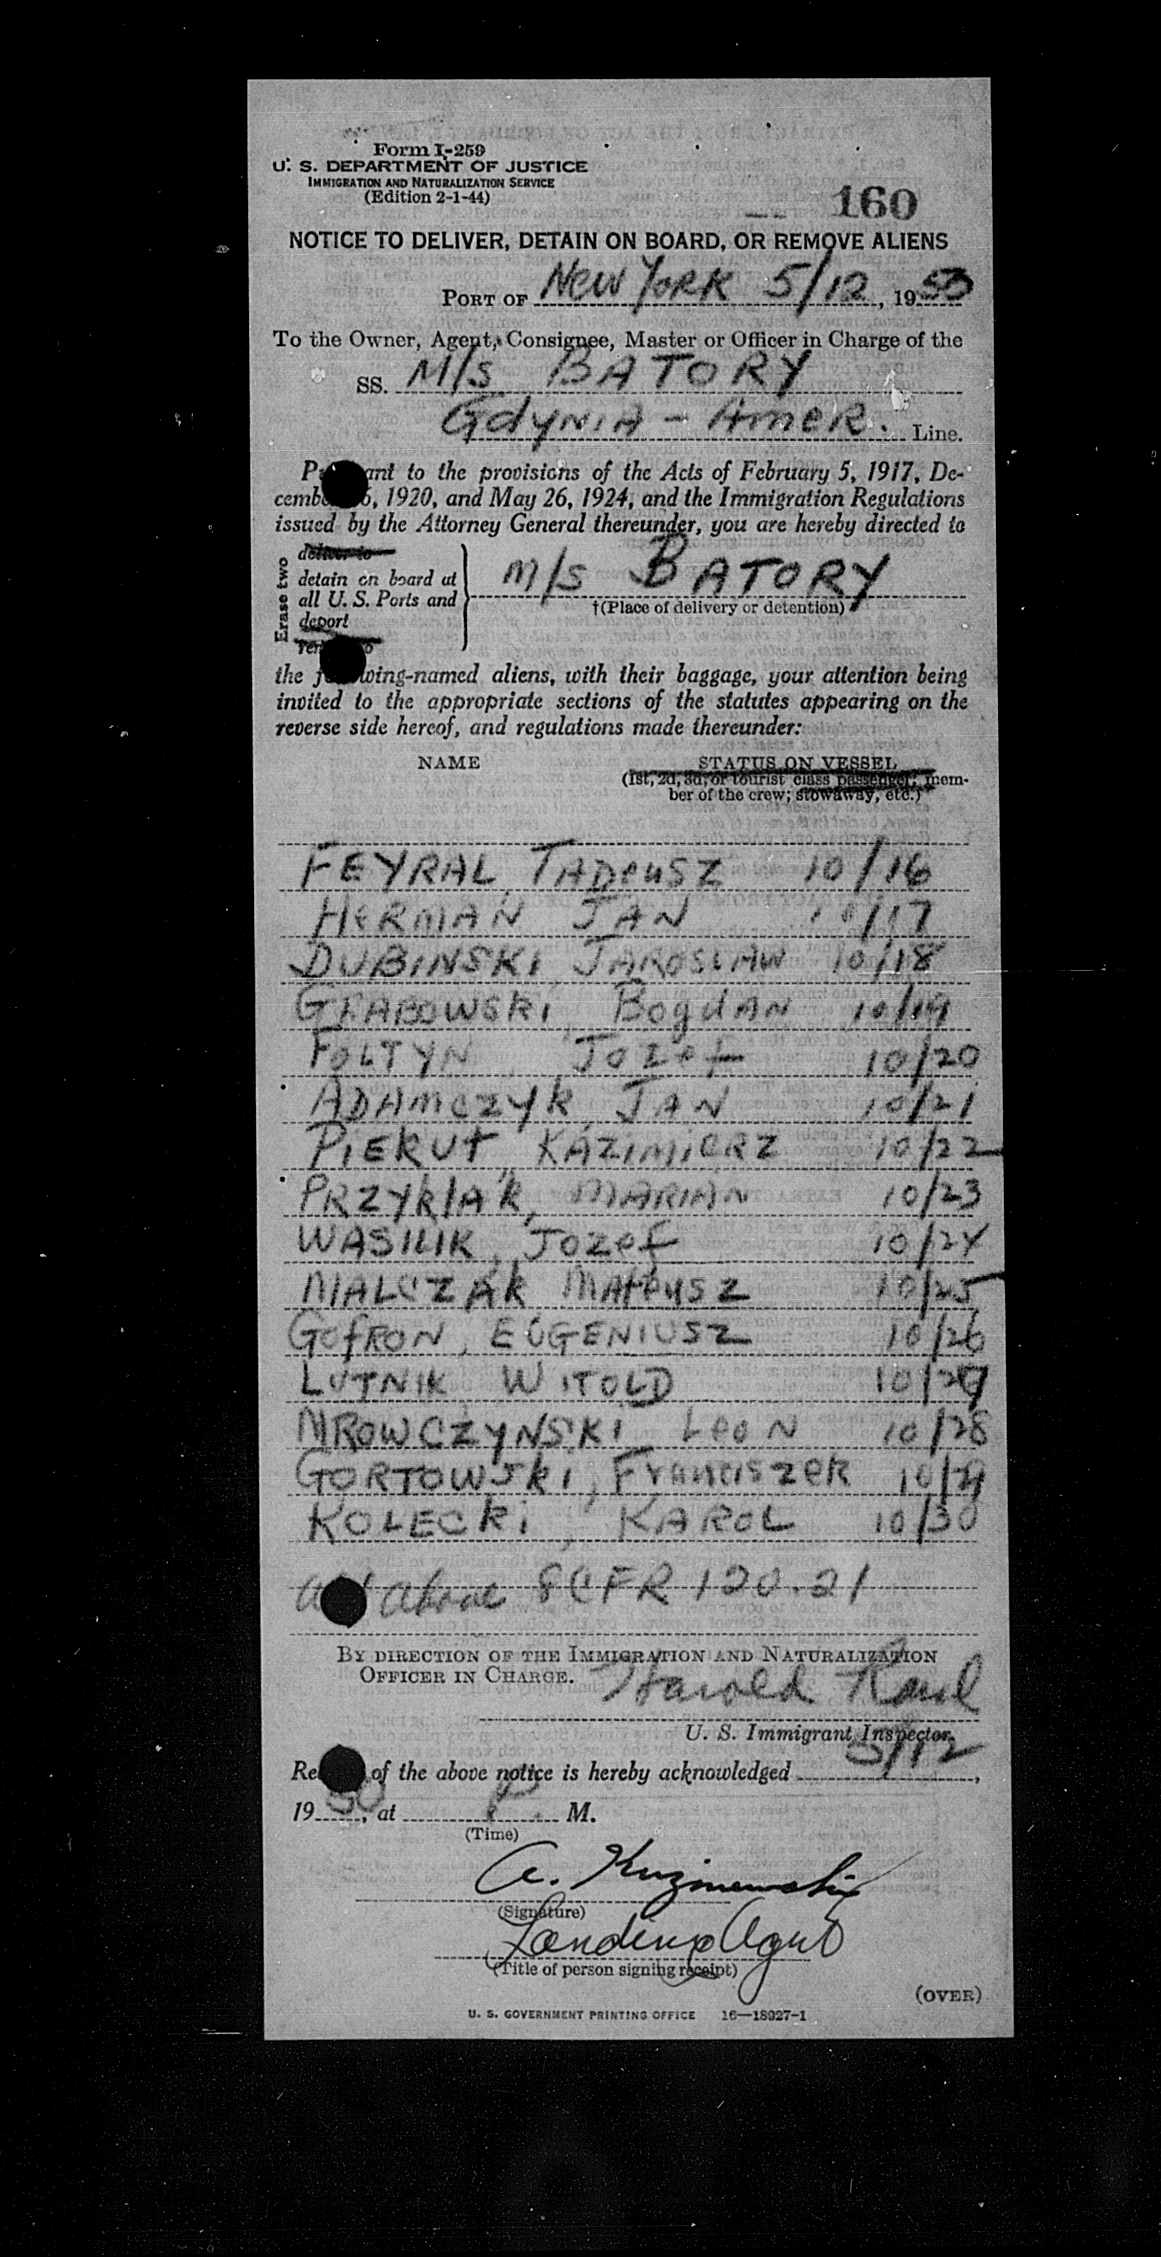 Form I-259
U. S. DEPARTMENT OF JUSTICE
IMMIGRATION AND NATURALIZATION SERVICE
(Edition 2-1-44)
160
NOTICE TO DELIVER, DETAIN ON BOARD, OR REMOVE ALIENS
PORT OF NEW YORK 5/12, 1950
To the Owner, Agent, Consignee, Master or Officer in Charge of the
SS. M/s BATORY
GdyNIA - AmeR. Line.
ant to the provisions of the Acts of February 5, 1917, De-
cemb 5, 1920, and May 26, 1924, and the Immigration Regulations
issued by the Attorney General thereunder, you are hereby directed to
Erase two
deliver to
detain on board at
all U. S. Ports and
deport
M/s BATORY
†(Place of delivery or detention)
the following-named aliens, with their baggage, your attention being
invited to the appropriate sections of the statutes appearing on the
reverse side hereof, and regulations made thereunder:
NAME STATUS ON VESSEL
(1st, 2d, 3d, or tourist class passenger; mem-
ber of the crew; stowaway, etc.)
FEYRAL, TADeusZ 10/16
HeRMAN JAN 10/17
DUBINSKi JAROSLAW 10/18
GRABOWSKi, BogdAN 10/19
FOLTYN, Jozef 10/20
ADAMCZYK JAN 10/21
PiEKUt KAZIMieRZ 10/22
PRZYklAk, MARIAN 10/23
WASILIK, Jozef 10/24
MALCZAk MAteusz 10/25
GofRON, EUGENIUSZ 10/26
LUTNIK WITOLD 10/27
MROWCZYNSKI LeoN 10/28
GORTOWSki, Franciszek 10/29
KOLECKi, KAROL 10/30
All above 8 CFR 120.21
BY DIRECTION OF THE IMMIGRATION AND NATURALIZATION
OFFICER IN CHARGE. Harold
U. S. Immigrant Inspector.
Re of the above notice is hereby acknowledged 5/12,
1950, at P. M.
(Time)
A. Kuzmewski
(Signature)
Landing Agent
(Title of person signing receipt)
(OVER)
U. S. GOVERNMENT PRINTING OFFICE 16—18927-1